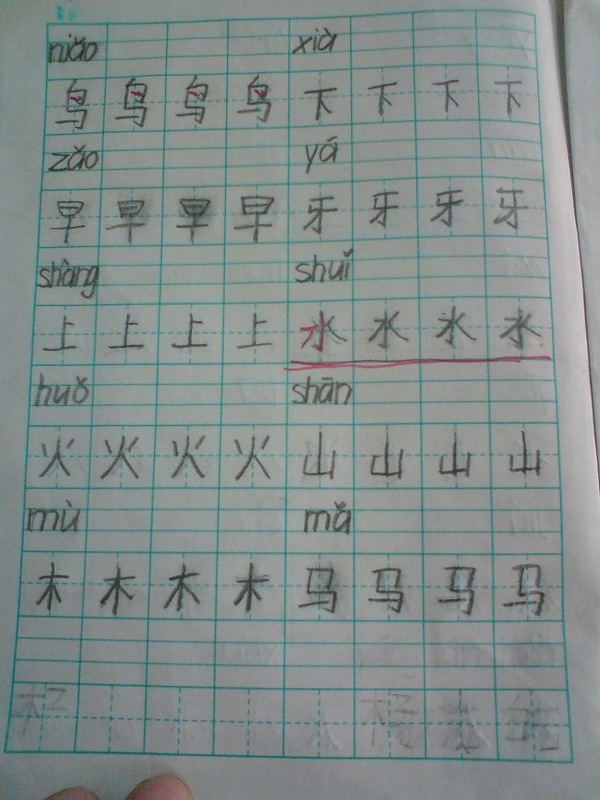 niǎo xià
鸟 鸟 鸟 鸟 下 下 下 下
zǎo yá
早 早 早 早 牙 牙 牙 牙
shàng shuǐ
上 上 上 上 水 水 水 水
huǒ shān
火 火 火 火 山 山 山 山
mù mǎ
木 木 木 木 马 马 马 马